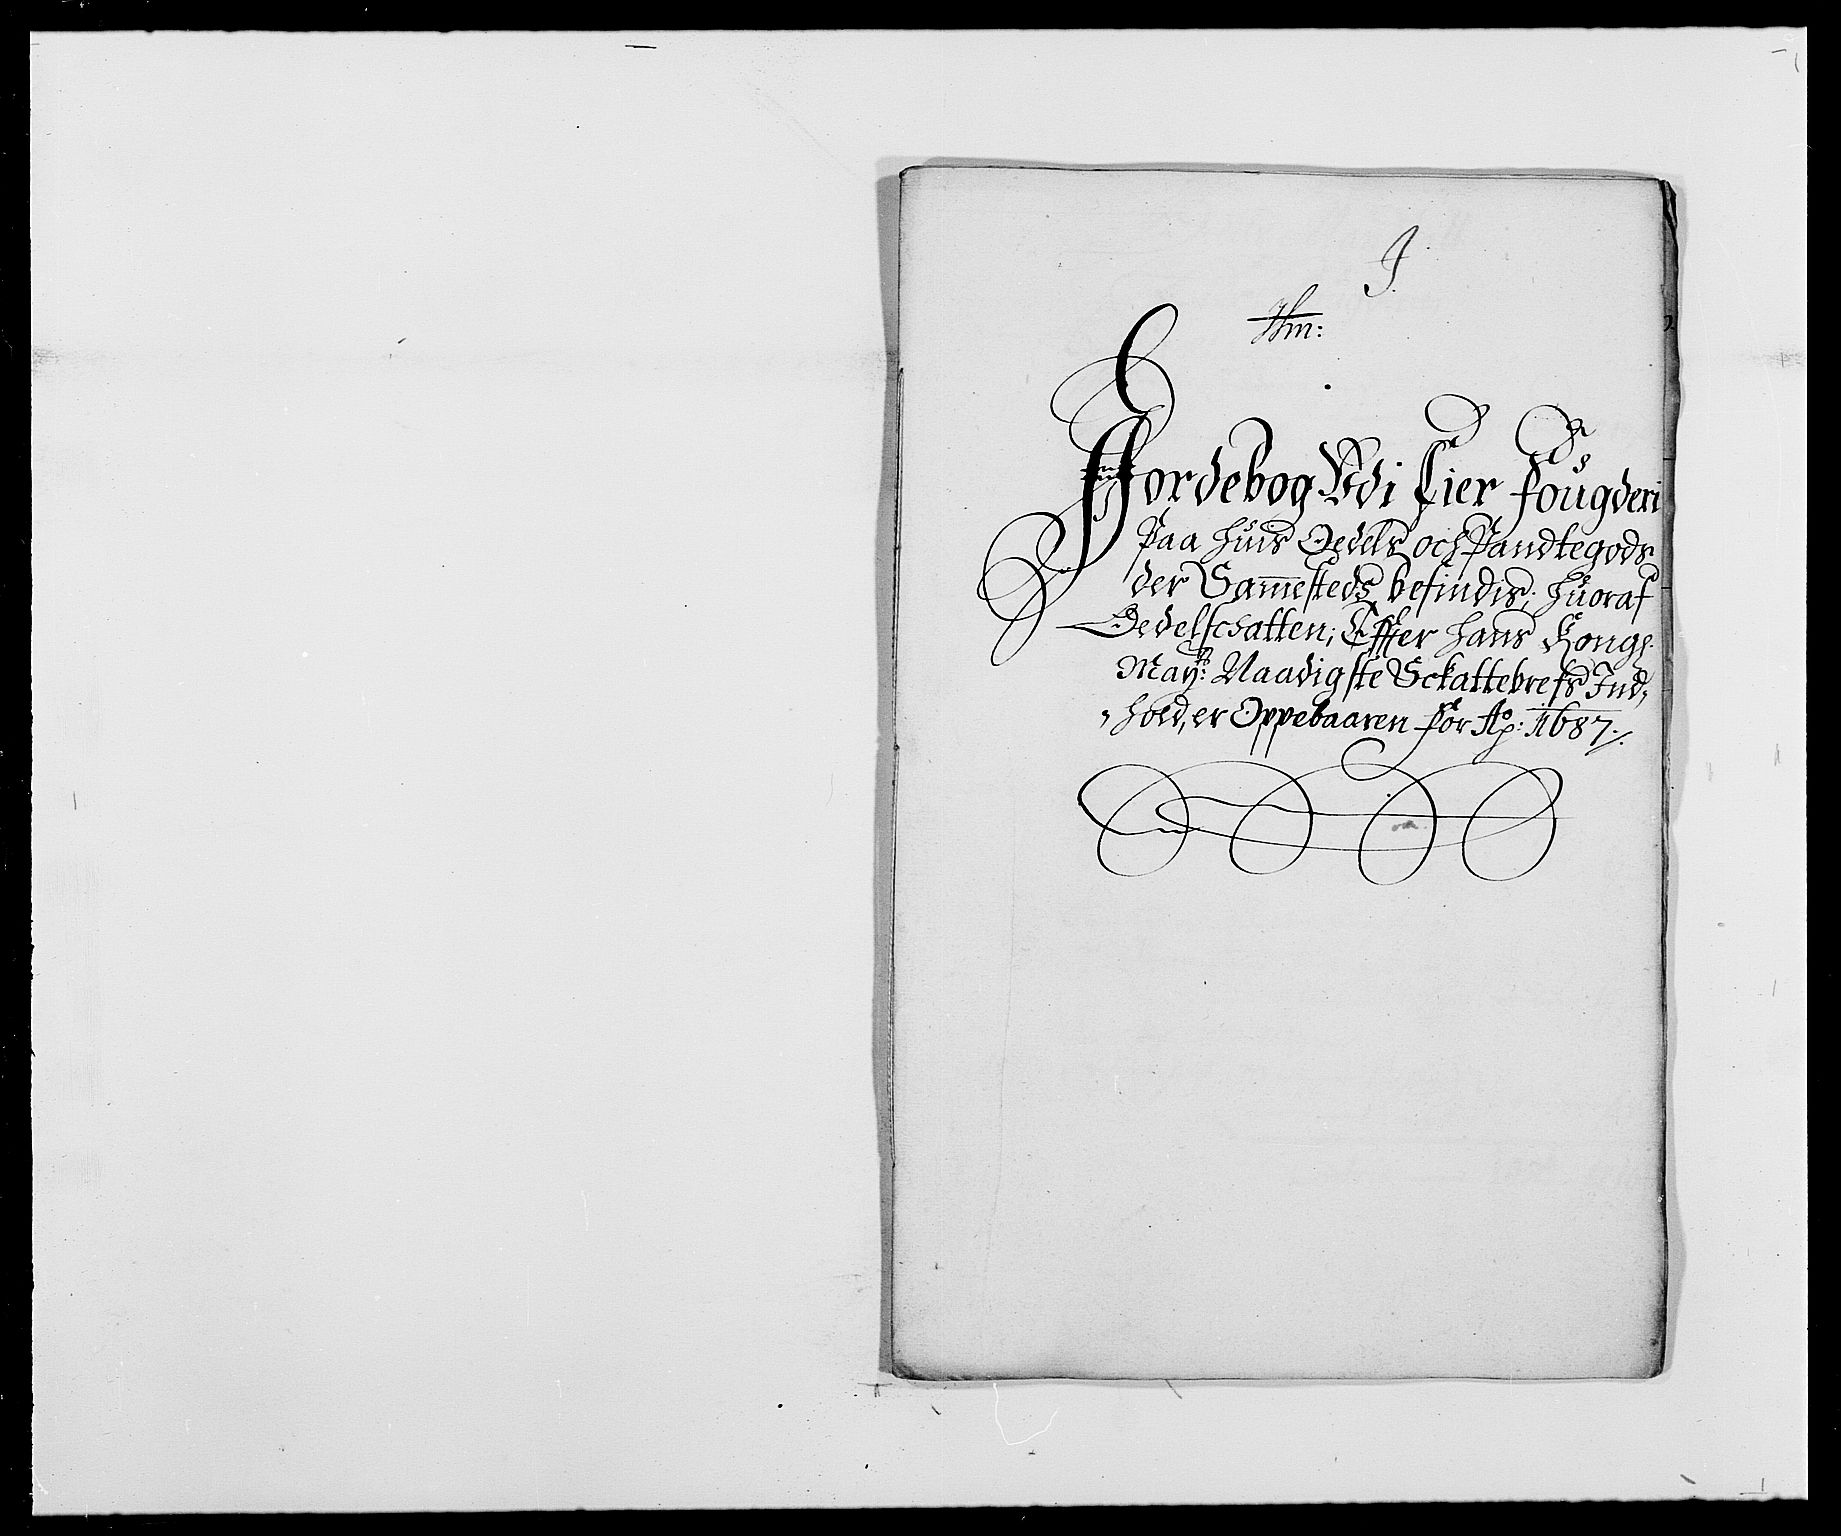 J.
Hm:
Jordebog Udi Lier Fougderi
Paa huis Oedels och Pandtegods
der Sam̄esteds befindis; huoraf
Oedelschatten; Effter hans Kongl.
May:ts Naadigste Sckattebrefs Ind„
„hold, er Oppebaaren for Ao: 1687./.